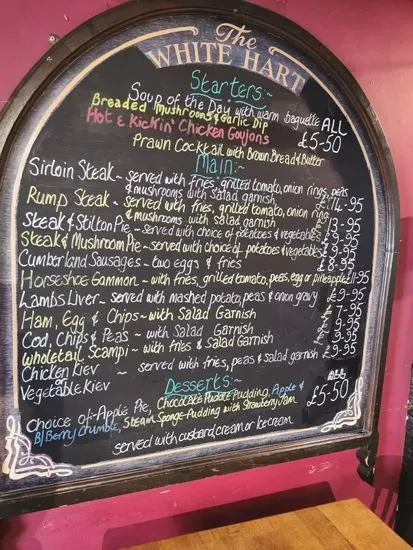 The
WHITE HART
Starters:~
Soup of the Day with warm baguette
Breaded Mushrooms & Garlic Dip
Hot & Kickin' Chicken Goujons
ALL £5-50
Prawn Cocktail with Brown Bread & Butter
Main:~
Sirloin Steak ~ served with fries, grilled tomato, onion rings, peas
& mushrooms with salad garnish £14-95
Rump Steak ~ served with fries, grilled tomato, onion rings
& mushrooms with salad garnish
Steak & Stilton Pie ~ served with choice of potatoes & vegetables
Steak & Mushroom Pie ~ served with choice of potatoes & vegetables
Cumberland Sausages ~ two eggs & fries
Horseshoe Gammon ~ with fries, grilled tomato, peas, egg or pineapple £11-95
Lambs Liver ~ served with mashed potato, peas & onion gravy £9-95
Ham, Egg & Chips ~ with Salad Garnish
Cod, Chips & Peas ~ with Salad Garnish
Wholetail Scampi ~ with fries & Salad Garnish
Chicken Kiev or ~ served with fries, peas & salad garnish £9-95
Vegetable Kiev
Desserts:~
ALL £5-50
Choice of~Apple Pie, Chocolate Fudge Pudding, Apple &
B/Berry Crumble, Steam Sponge-Pudding with Strawberry Jam
served with custard, cream or Icecream